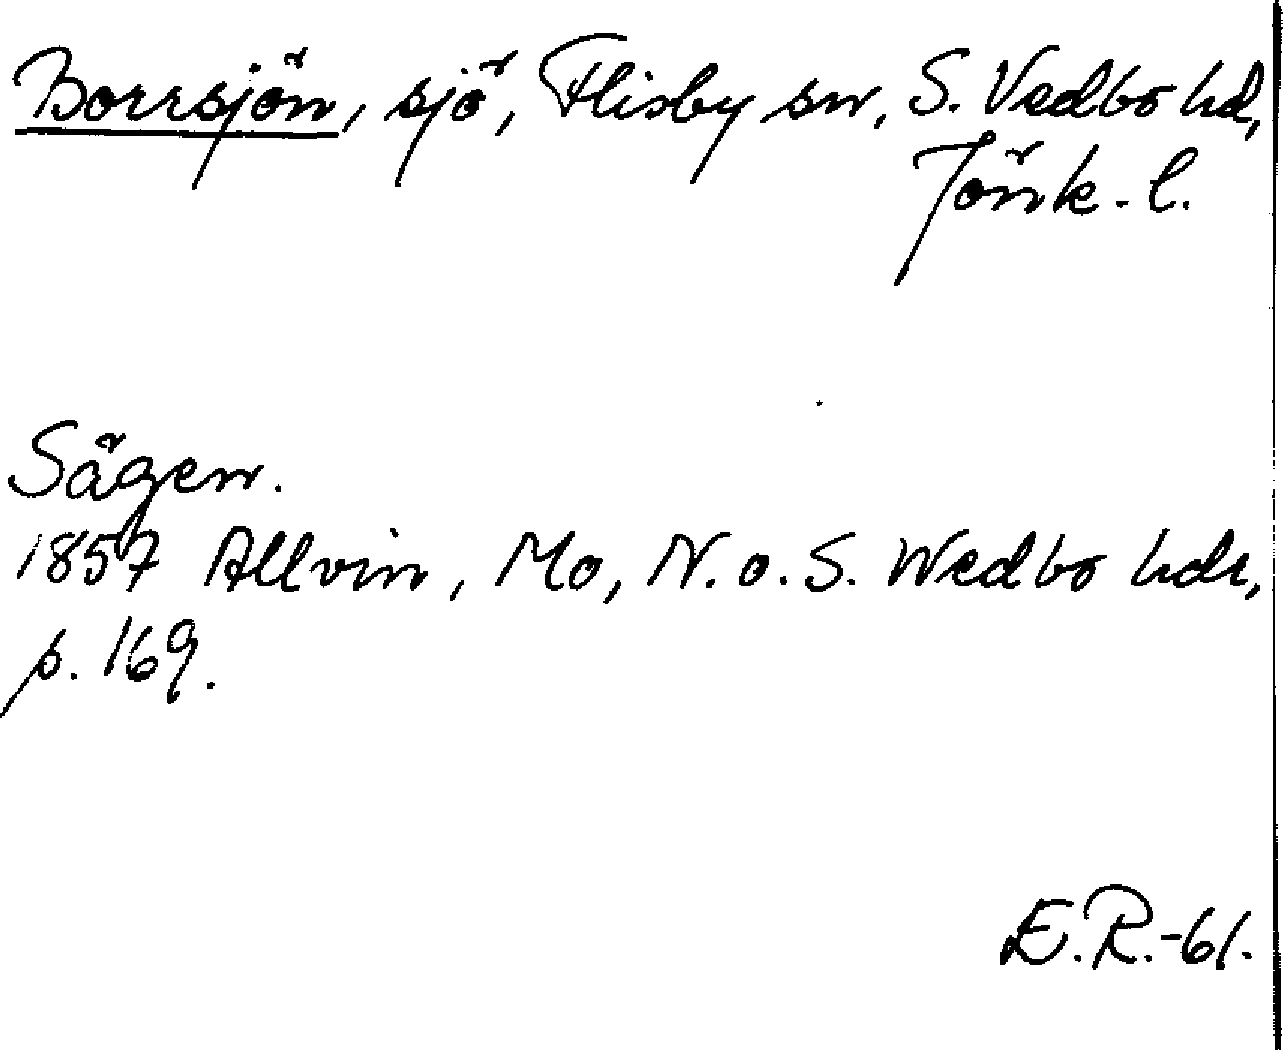 Borrsjön, sjö, Flisby sn, S. Vedbo hd,
Jönk. l.
Sägen.
1857 Allvin, Mo, N. o. S. Wedbo hdr,
p. 169.
E.R.-61.